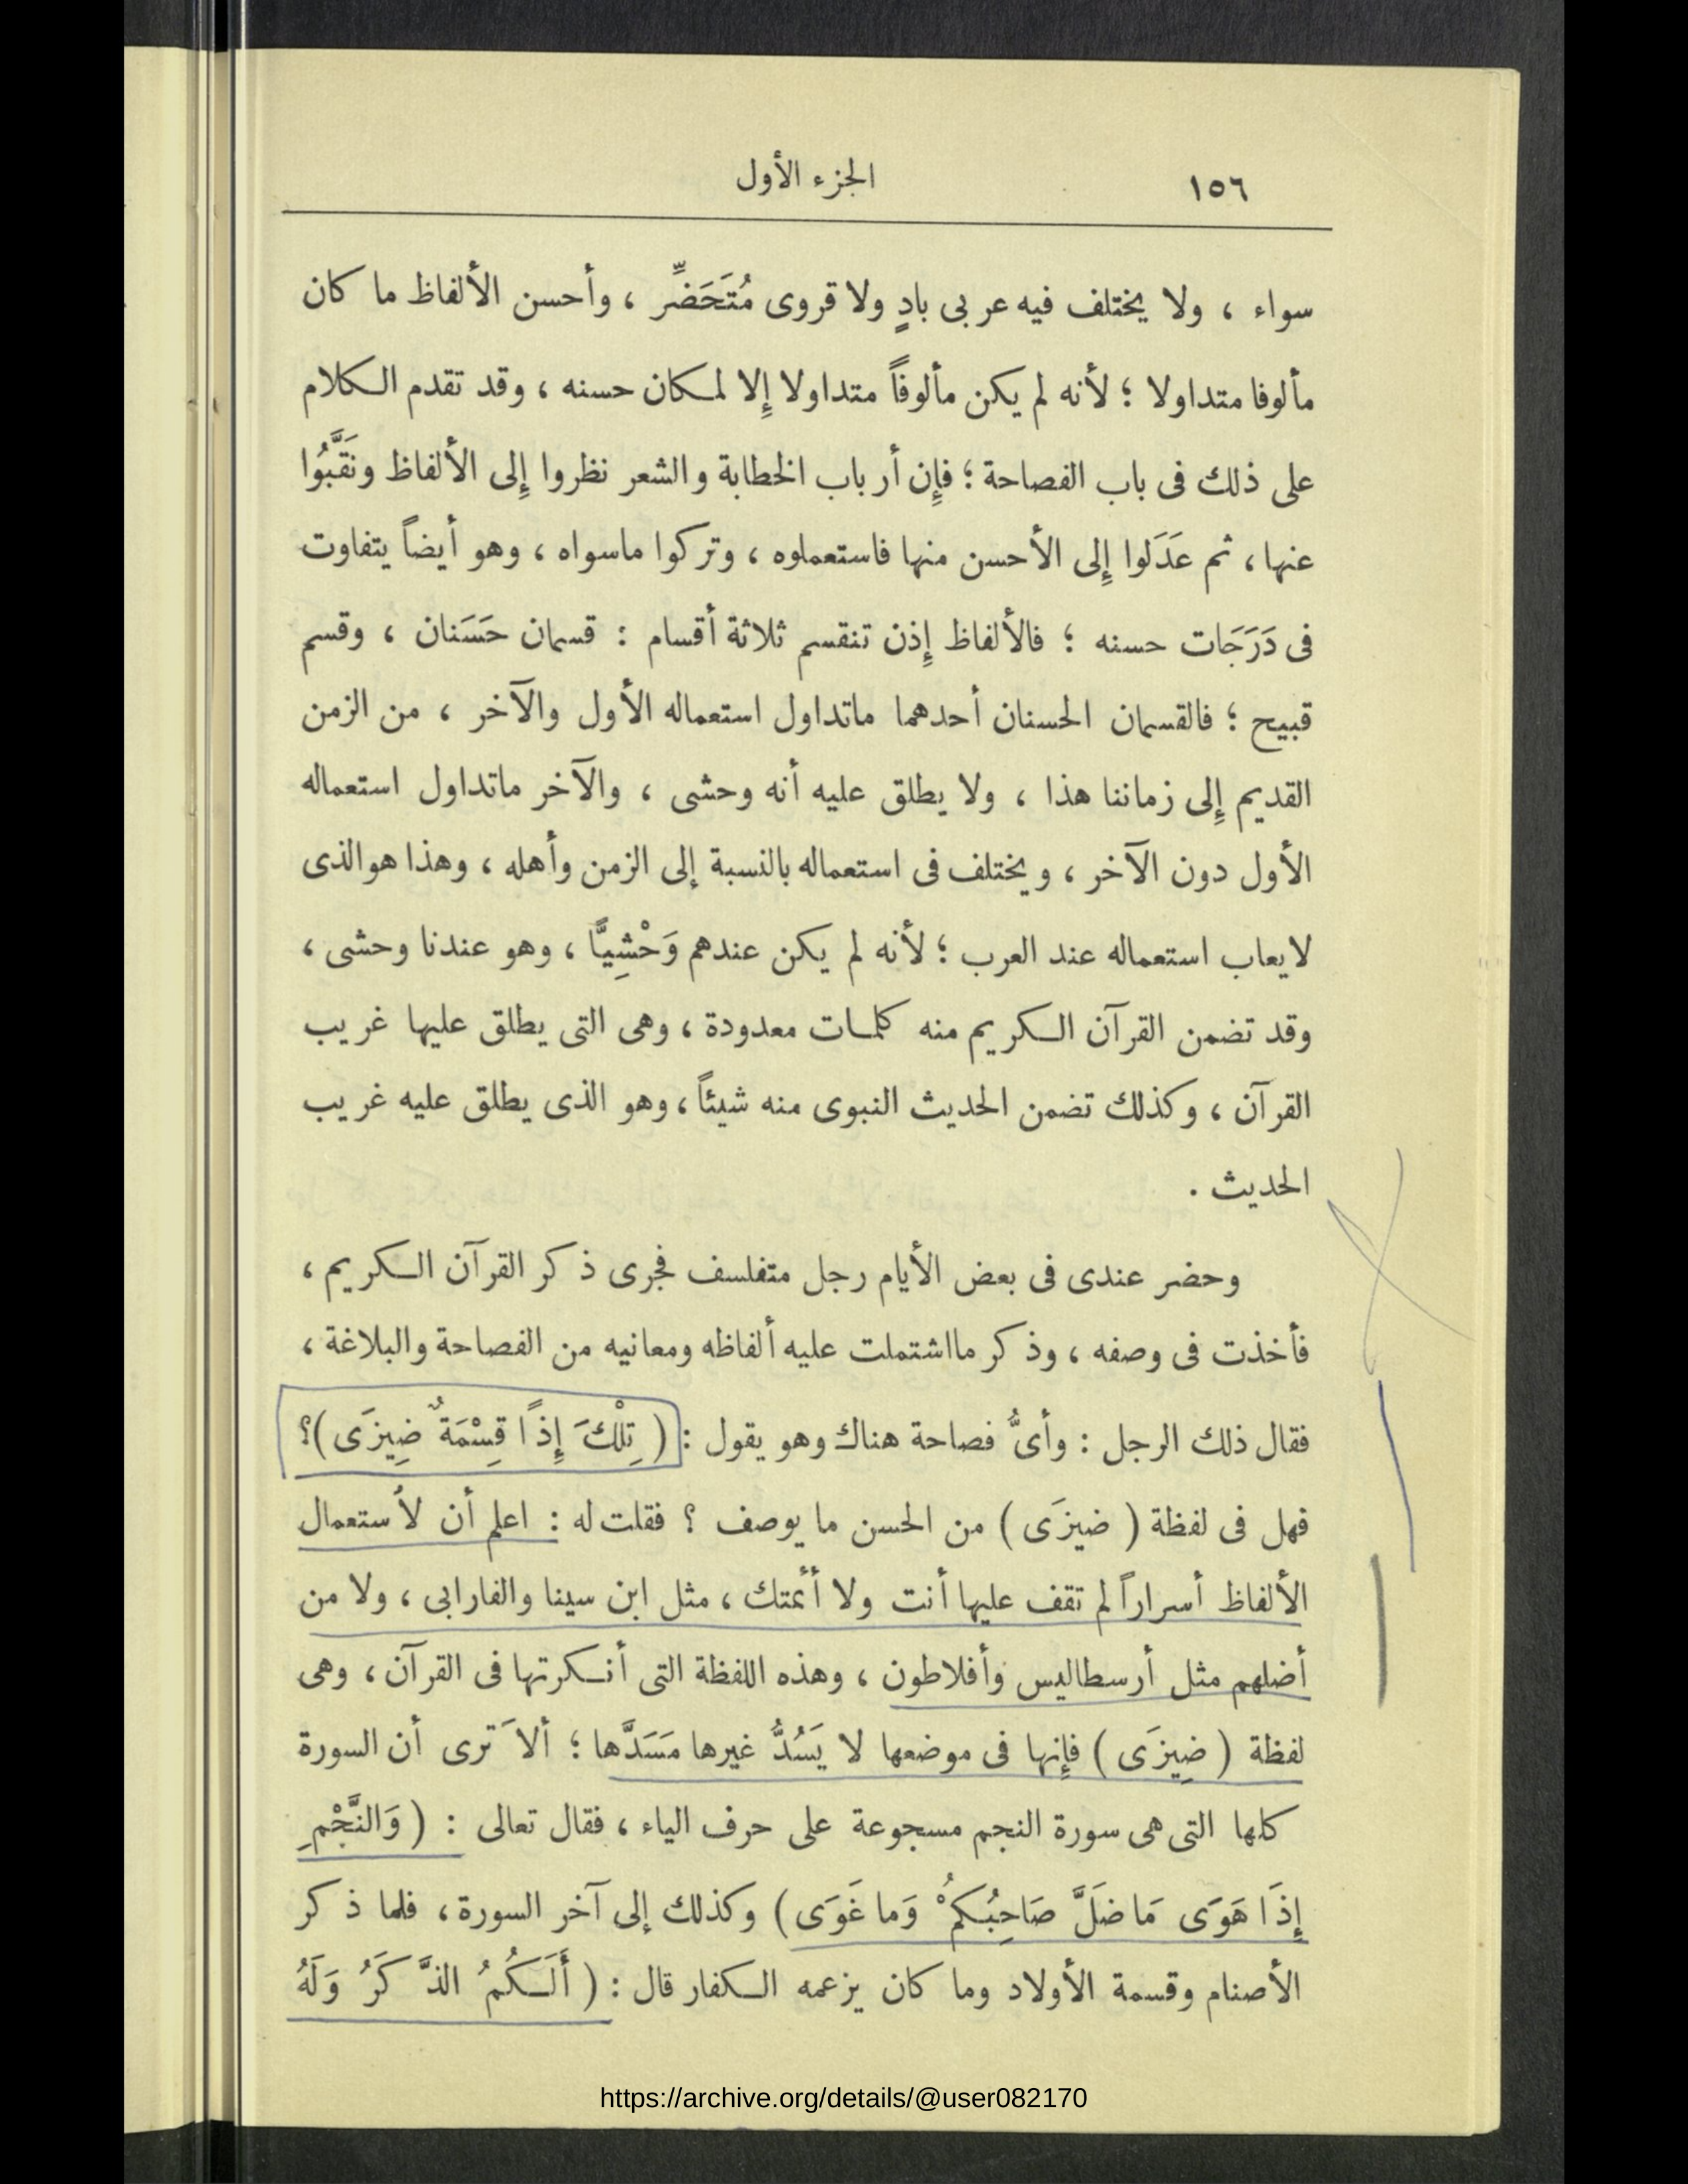 ١٥٦
الجزء الأول
سواء ، ولا يختلف فيه عربى بادٍ ولا قروى مُتَحَضِّر ، وأحسن الألفاظ ما كان
مألوفا متداولا ؛ لأنه لم يكن مألوفاً متداولا إِلا لمكان حسنه ، وقد تقدم الكلام
على ذلك فى باب الفصاحة ؛ فإِن أرباب الخطابة والشعر نظروا إِلى الألفاظ ونَقَّبُوا
عنها ، ثم عَدَلوا إِلى الأحسن منها فاستعملوه ، وتركوا ماسواه ، وهو أيضاً يتفاوت
فى دَرَجَات حسنه ؛ فالألفاظ إِذن تنقسم ثلاثة أقسام : قسمان حَسَنان ، وقسم
قبيح ؛ فالقسمان الحسنان أحدهما ماتداول استعماله الأول والآخر ، من الزمن
القديم إِلى زماننا هذا ، ولا يطلق عليه أنه وحشى ، والآخر ماتداول استعماله
الأول دون الآخر ، ويختلف فى استعماله بالنسبة إلى الزمن وأهله ، وهذا هو الذى
لايعاب استعماله عند العرب ؛ لأنه لم يكن عندهم وَحْشِيًّا ، وهو عندنا وحشى ،
وقد تضمن القرآن الكريم منه كلمات معدودة ، وهى التى يطلق عليها غريب
القرآن ، وكذلك تضمن الحديث النبوى منه شيئاً ، وهو الذى يطلق عليه غريب
الحديث .
وحضر عندى فى بعض الأيام رجل متفلسف فجرى ذكر القرآن الكريم ،
فأخذت فى وصفه ، وذكر مااشتملت عليه ألفاظه ومعانيه من الفصاحة والبلاغة ،
فقال ذلك الرجل : وأىُّ فصاحة هناك وهو يقول : ( تِلْكَ إِذاً قِسْمَةٌ ضِيزَى )؟
فهل فى لفظة ( ضيزَى ) من الحسن ما يوصف ؟ فقلت له : اعلم أن لاُستعمال
الألفاظ أسراراً لم تقف عليها أنت ولا أئمتك ، مثل ابن سينا والفارابى ، ولا من
أضلهم مثل أرسطاليس وأفلاطون ، وهذه اللفظة التى أنكرتها فى القرآن ، وهى
لفظة ( ضِيزَى ) فإِنها فى موضعها لا يَسُدُّ غيرها مَسَدَّها ؛ ألاَ ترى أن السورة
كلها التى هى سورة النجم مسجوعة على حرف الياء ، فقال تعالى : ( وَالنَّجْمِ
إِذَا هَوَى مَا ضَلَّ صَاحِبُكُمْ وَما غَوَى ) وكذلك إلى آخر السورة ، فلما ذكر
الأصنام وقسمة الأولاد وما كان يزعمه الكفار قال : ( أَلَكُمُ الذَّكَرُ وَلَهُ
https://archive.org/details/@user082170